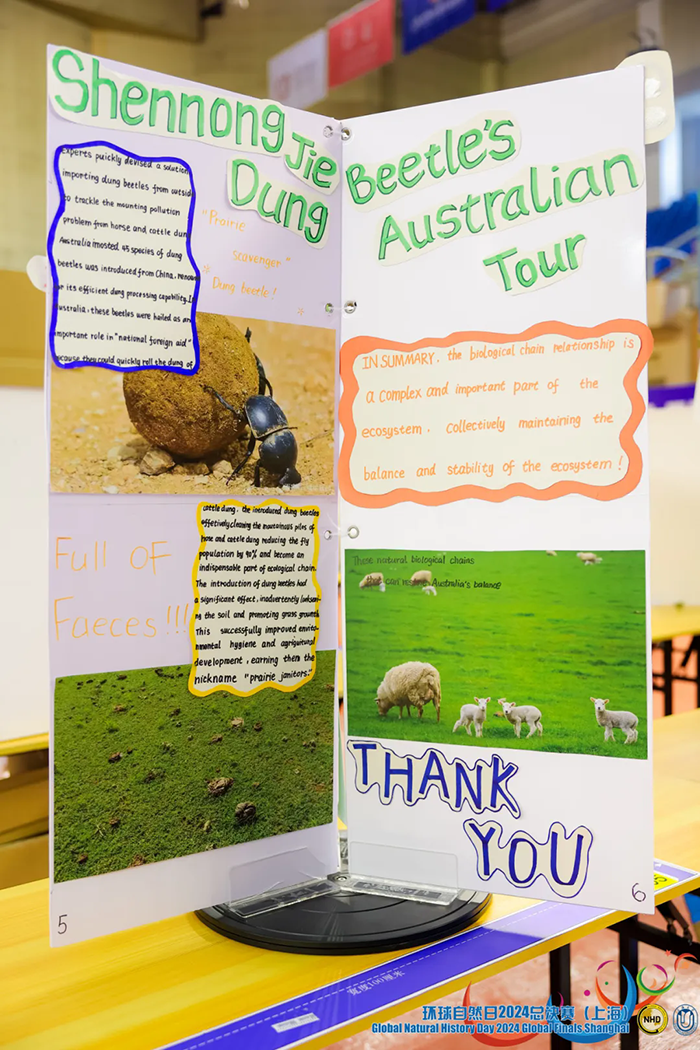 Shennong Jie
Dung
Experts puickly devised a solution
importing dung beetles from outside
to trackle the mounting pollution
problem from horse and cattle dun
Australia imosted 45 species of dung
beetles was introduced from China, renown
or its efficient dung processing capability. In
ustralia, these beetles were hailed as an
important role in "national foreign aid"
because they could quickly roll the dung of
"Prairie
scavenger"
Dung beetle!
cattle dung. the introduced dung beetles
effetively cleaning the mountainous piles of
hose and cattle dung reducing the fly
population by 90% and become an
indispensable part of ecological chain.
The introduction of dung beetles had
a significant effect, inadvertently
ng the soil and promoting grass growth
This successfully improved enviro-
nmental hygiene and agricultural
development, earning them the
nickname "prairie janitors."
Full of
Faeces!!!
5
Beetle's
Australian
Tour
IN SUMMARY. the biological chain relationship is
a complex and important part of the
ecosystem. Collectively maintaining the
balance and stability of the ecosystem!
These natural biological chains
can Australia's balance
THANK
YOU
6
宽度100厘米
环球自然日2024总决赛（上海）
Global Natural History Day 2024 Global Finals Shanghai
NHD